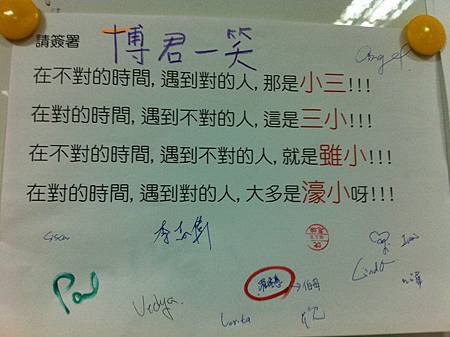 請簽署 博君一笑
在不對的時間, 遇到對的人, 那是小三!!!
在對的時間, 遇到不對的人, 這是三小!!!
在不對的時間, 遇到不對的人, 就是雖小!!!
在對的時間, 遇到對的人, 大多是濠小呀!!!
Paul
Vedya.
Linda
Lorita
→伯母